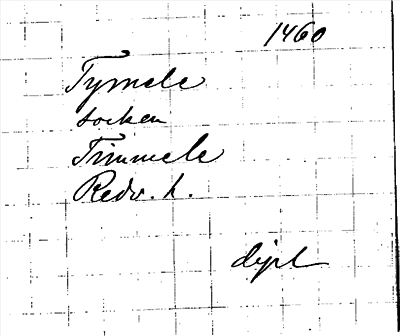 1460
Tymele
socken
Timmele
Redv. h.
dipl